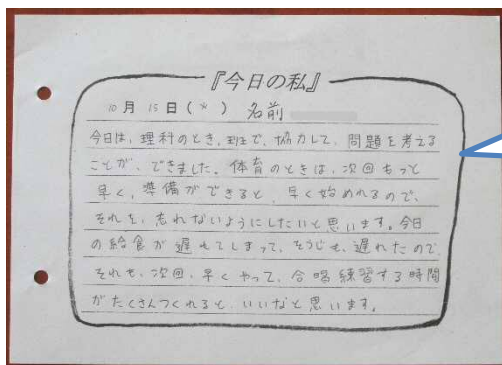 『今日の私』
10月15日(火) 名前
今日は、理科のとき、班で、協力して、問題を考える
ことが、できました。体育のときは、次回もっと
早く、準備ができると、早く始めれるので、
それを、忘れないようにしたいと思います。今日
の給食が遅れてしまって、そうじも、遅れたので
それも、次回、早くやって、合唱練習する時間
がたくさんつくれると、いいなと思います。